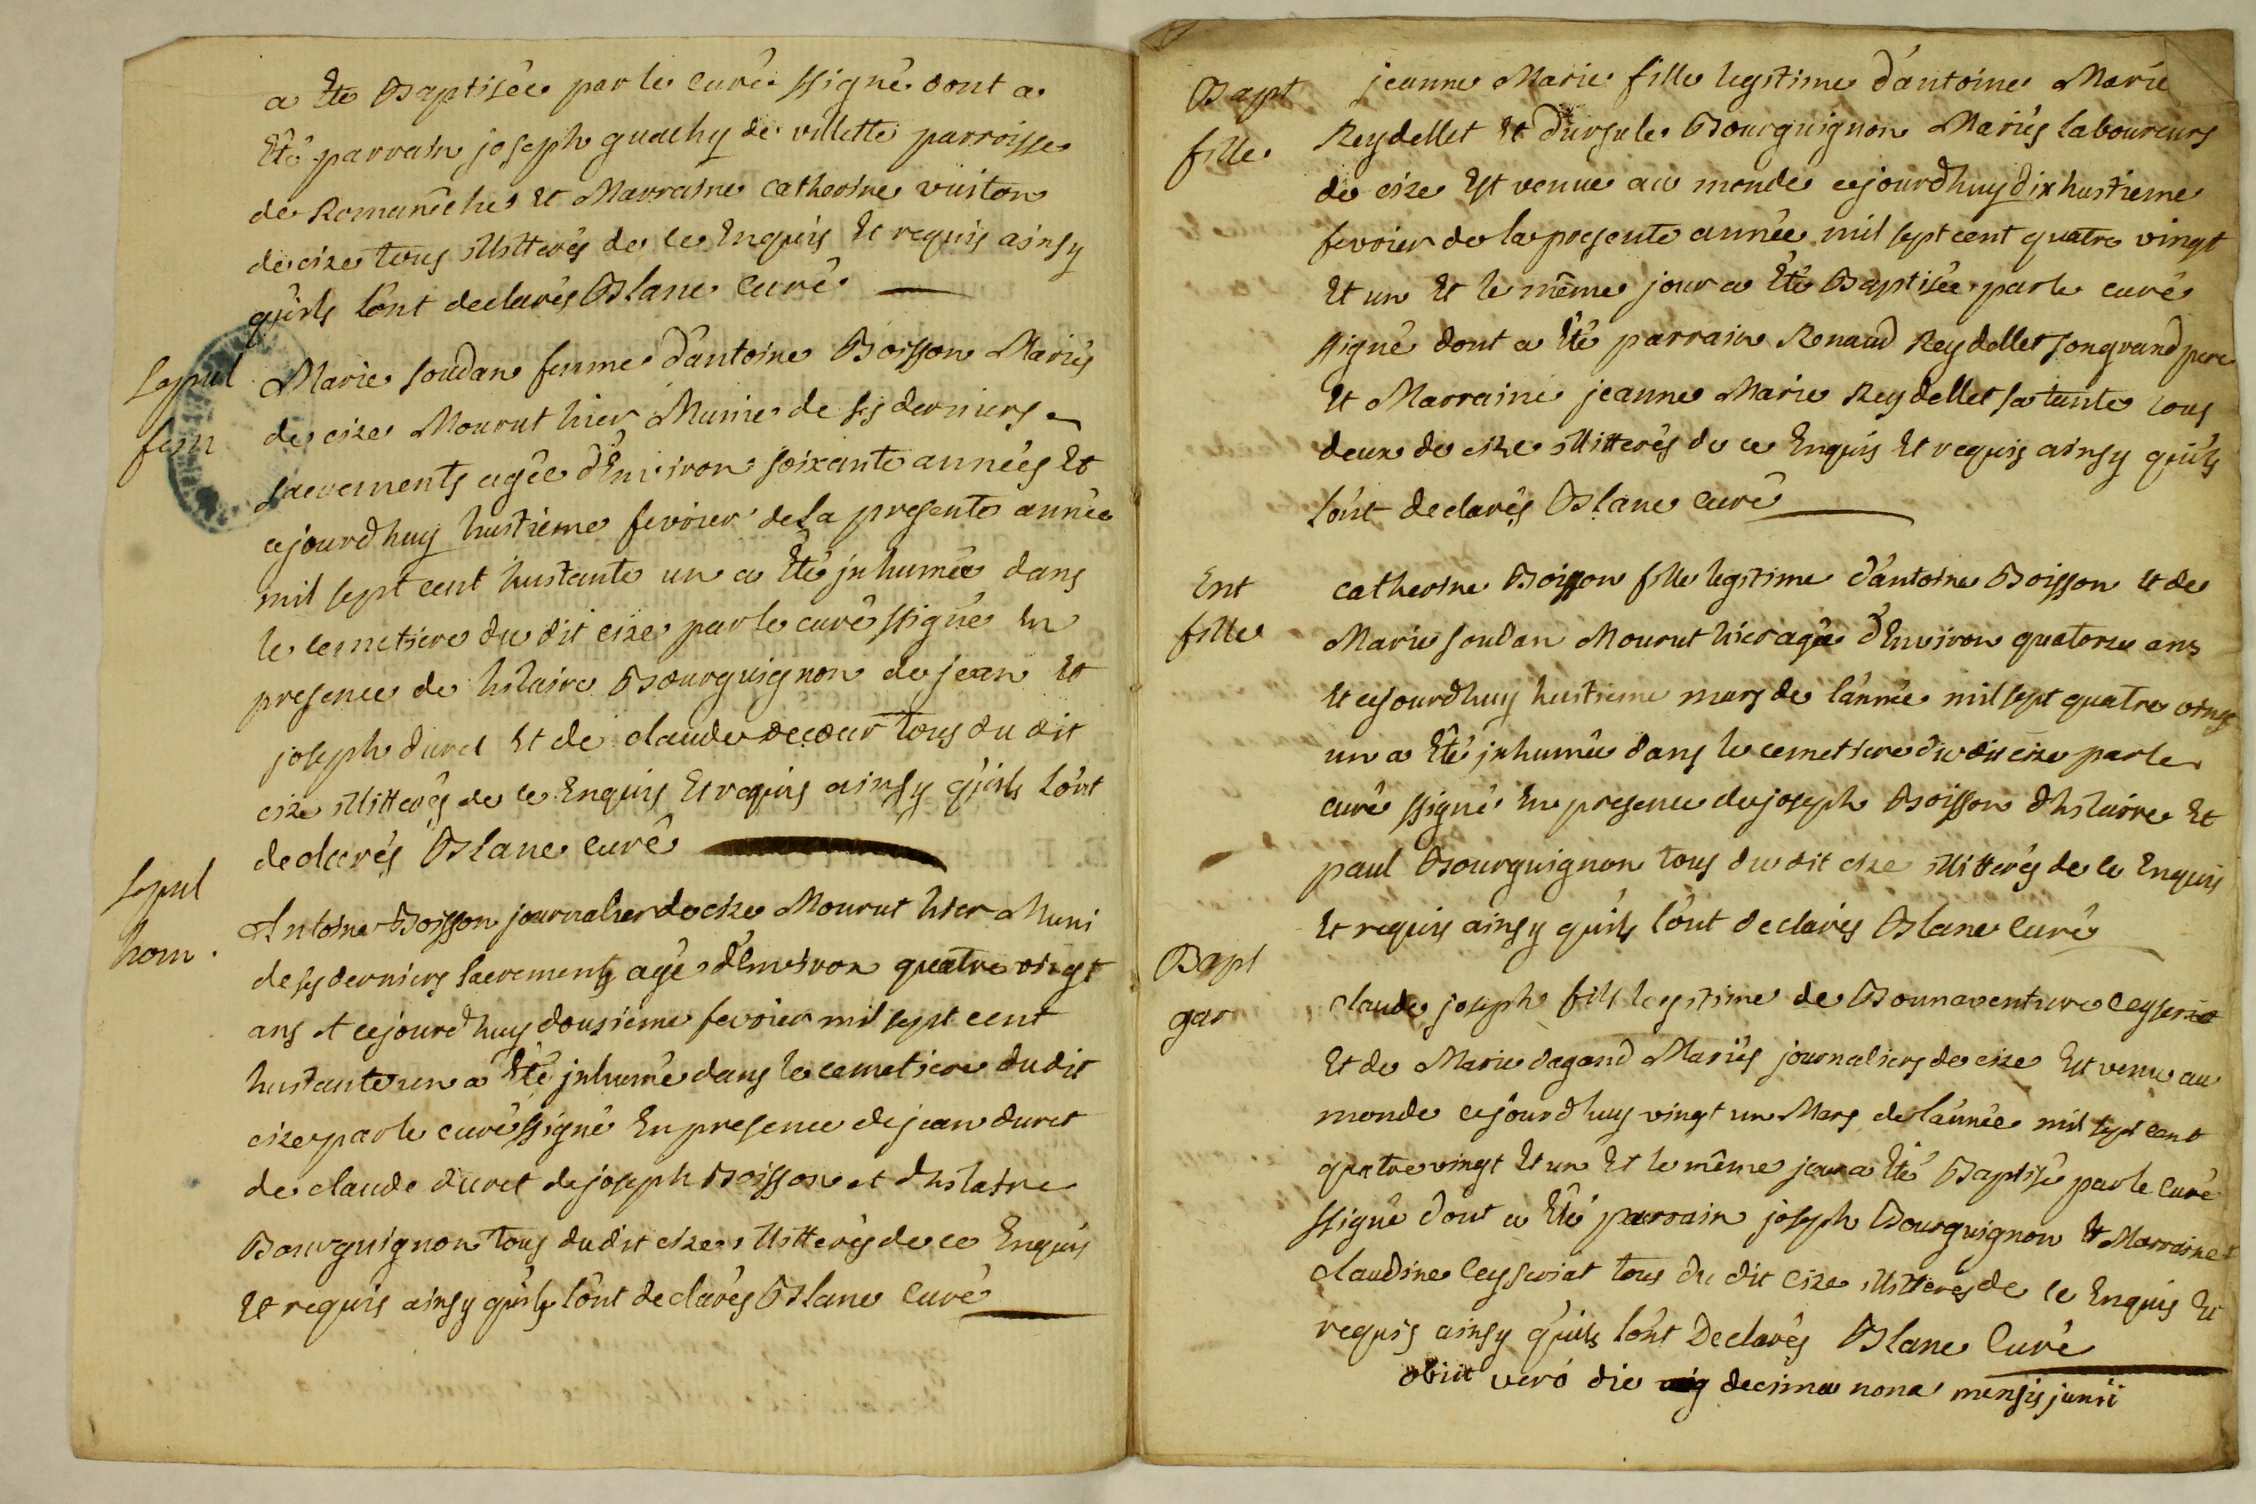 a Eté Baptisée par le curé ssigné dont a
Eté parrain joseph guachy de villette parroisse
de Romanêche Et Marraine catherine vuiton
de cize tous illitterés de ce Enquis Et requis ainsy
qu'ils l'ont declarés Blanc curé
Sepul
fem
Marie soudan femme d'antoine Boisson Mariés
de cize Mourut hier Munie de ses derniers
sacrements agée d'Environ soixante années Et
cejourdhuy huitieme fevrier de la presente année
mil sept cent huitante un a Eté inhumée dans
le cemetiere du dit cize par le curé ssigné En
presence de hilaire Bourguignon de jean Et
joseph duret Et de claude Decoeur tous du dit
cize illitterés de ce Enquis Et requis ainsy qu'ils l'ont
declarés Blanc curé
Sepul
hom.
Antoine Boisson journalier de cize Mourut hier Muni
de ses derniers sacrements agé d'Environ quatre vingt
ans et cejourdhuy dousieme fevrier mil sept cent
huitante un a Eté inhumé dans le cemetiere du dit
cize par le curé ssigné En presence de jean duret
de claude duret de joseph Boisson et d'hilaire
Bourguignon tous du dit cize illitterés de ce Enquis
Et requis ainsy qu'ils l'ont declarés Blanc Curé
Bapt
fille
jeanne Marie fille legitime d'antoine Marie
Reydellet Et d'ursule Bourguignon Mariés laboureurs
de cize Est venue au monde cejourdhuy dix huitieme
fevrier de la presente année mil sept cent quatre vingt
Et un Et le même jour a Eté Baptisée par le curé
ssigné dont a Eté parrain Renaud Reydellet son grand pere
Et Marraine jeanne Marie Reydellet sa tante tous
deux de cize illitterés de ce Enquis Et requis ainsy qu'ils
l'ont declarés Blanc curé
Ent
fille
catherine Boisson fille legitime d'antoine Boisson Et de
Marie soudan Mourut hier agée d'Environ quatorze ans
Et cejourdhuy huitieme mars de l'année mil sept quatre vingt
un a Eté inhumée dans le cemetiere du dit cize par le
curé ssigné En presence de joseph Boisson d'hilaire Et
paul Bourguignon tous du dit cize illitterés de ce Enquis
Et requis ainsy qu'ils l'ont declarés Blanc Curé
Bapt
gar
claude joseph fils legitime de Bonnaventure Ceyseriat
Et de Marie dagand Mariés journaliers de cize Est venu au
monde cejourdhuy vingt un Mars de l'année mil sept cent
quatre vingt Et un Et le même jour a Eté Baptisé par le Curé
ssigné dont a Eté parrain joseph Bourguignon Et Marraine
claudine Ceyseriat tous du dit Cize illitterés de ce Enquis Et
requis ainsy qu'ils l'ont Declarés Blanc Curé
obiit veró die decima nona mensis junii